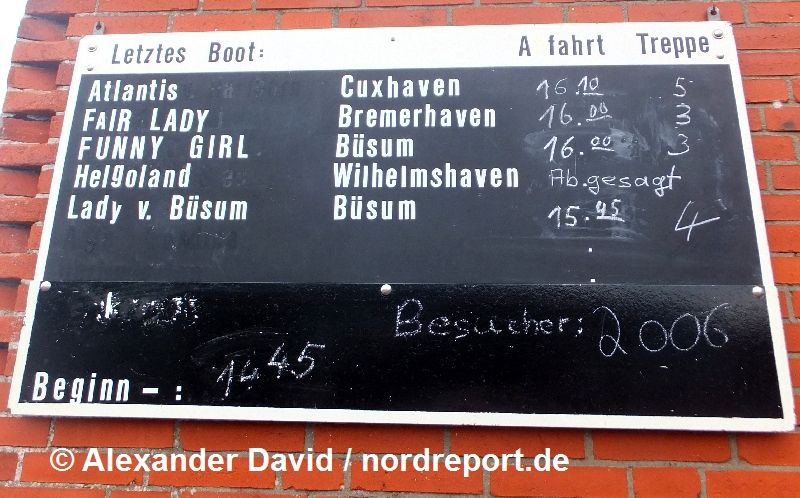 Letztes Boot: A fahrt Treppe
Atlantis Cuxhaven 16.10 5
FAIR LADY Bremerhaven 16.00 3
FUNNY GIRL Büsum 16.00 3
Helgoland Wilhelmshaven Ab.gesagt
Lady v. Büsum Büsum 15.45 4
Besucher: 2006
Beginn - : 1445
© Alexander David / nordreport.de